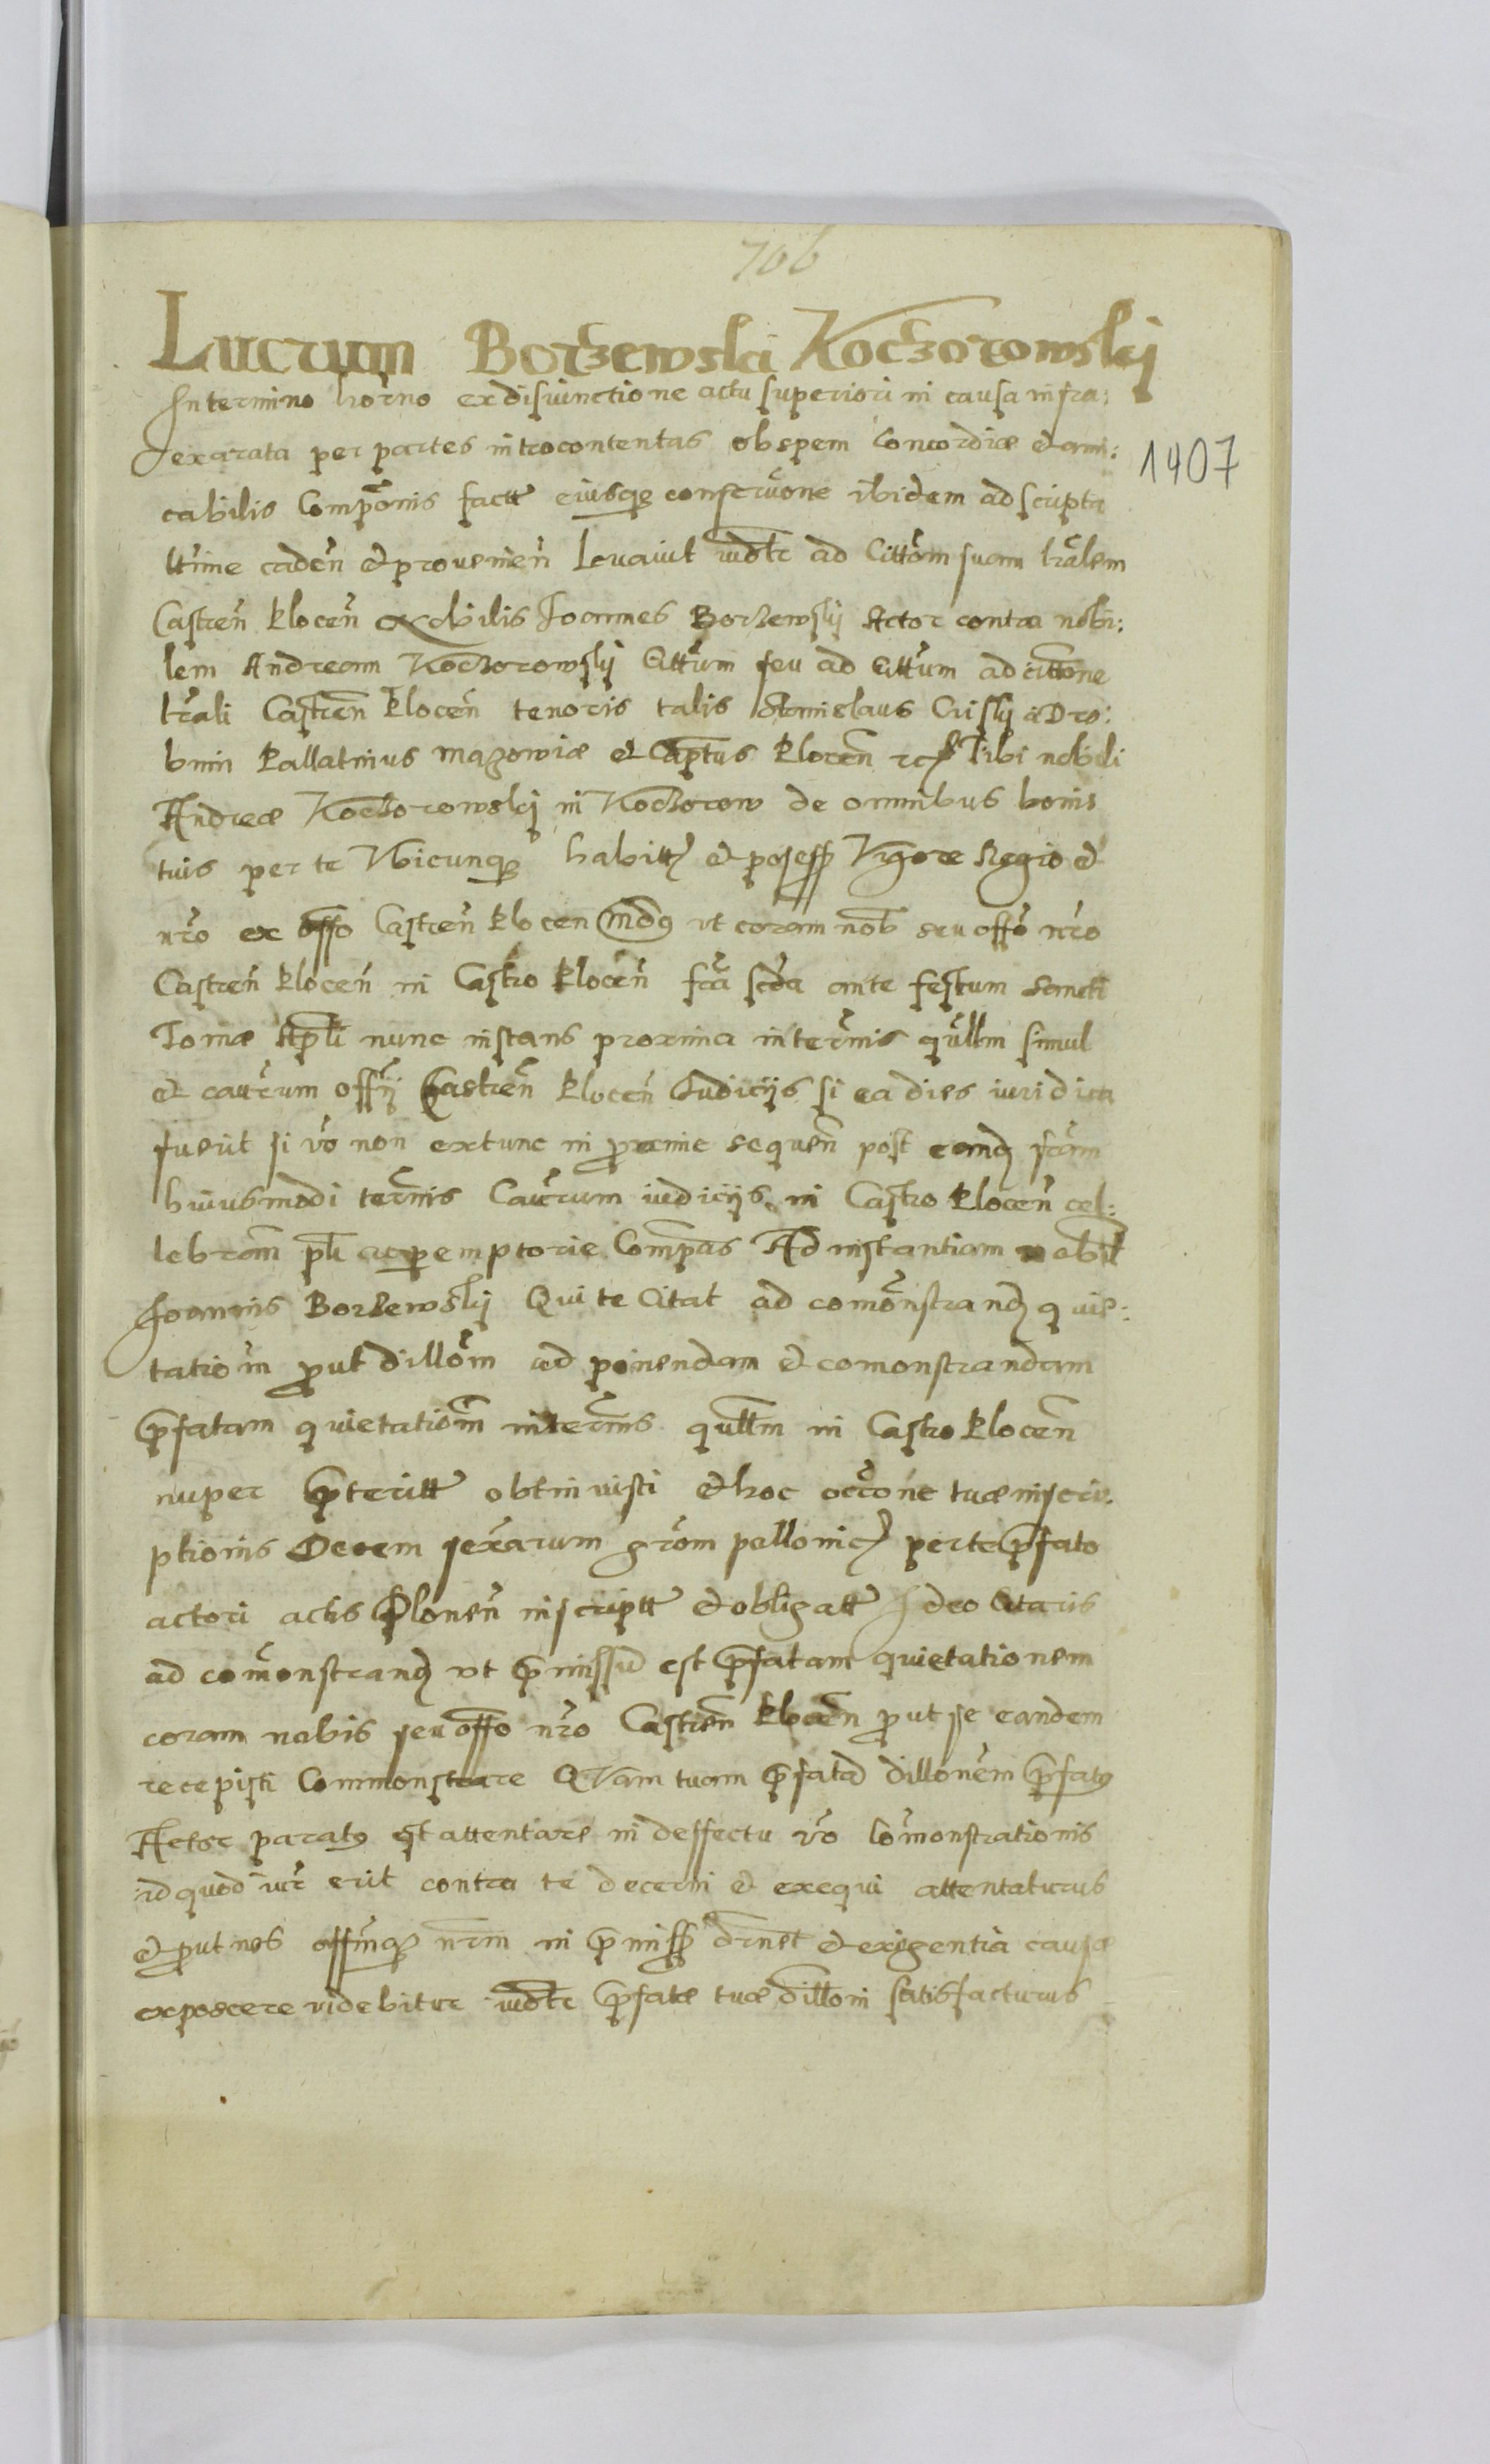 706
Lucrum Borzewski Koczorowskij
In termino horno ex disiunctione actu superiori in causa infra:
exarata per partes introcontentas ob spem Concordiæ et ami:
cabilis Compõnis factt eiusq conseruõne ibidem adscripta
lttime cadeñ et prouenieñ Leuauit iudtr ad Cittõm suam trãlem
Castreñ Ploceñ Nobilis Joannes Borzewskij Actor contra nobi:
lem Andream Koczorowskij Cittum seu ad Cittum ad cittõne
trãli Castreñ Ploceñ tenoris talis Stanislaus Criskij a Dro:
bnin Pallatinus Mazowiæ et Captus Ploceñ etc Tibi nobili
Andreæ Koczorowskij in Koczorow de omnibus bonis
tuis per te Vbicunq habitt et possess Vigore Regio et
nro ex offo Castreñ Plocen mdg vt coram nob seu offo nro
Castreñ Ploceñ in Castro Ploceñ fra scda ante festum Sancti
Tomæ Apli nunc instans proxima in termis qullm simul
et caurum offij Castreñ Ploceñ Iudicijs si ea dies iuridica
fuerit si vo non extunc in proxime sequeñ post eand fram
huiusmodi termis Caurum iudicijs in Castro Ploceñ cel:
lebram plr ac peremptorie Compas Ad instantiam nobil
Joannis Borzewskij Qui te Citat ad comonstrand quie:
tatiom prout dillom ad poinendam et comonstrandam
prefatam quietatiom in termis qullm in Castro Ploceñ
nuper preteritt obtinuisti et hoc occone tuæ inscri:
ptionis Decem sexarum grom pollonic per te prefato
actori actis Ploneñ inscriptt et obligatt Ideo Citaris
ad comonstrand vt premissu est prefatam quietationem
coram nobis seu offo nro Castreñ Ploceñ prout se eandem
recepisti Commonstrare QVam tuam prefata dillonem prefatg
Actor paratg est attentare in deffectu vo Comonstrationis
id quod iur erit contra te decerni et exequi attentaturus
et prout nos offmq nrm in premiss drnet et exigentia causæ
exposcere videbitur iudtr prefatæ tuæ dilloni satisfacturus
1407